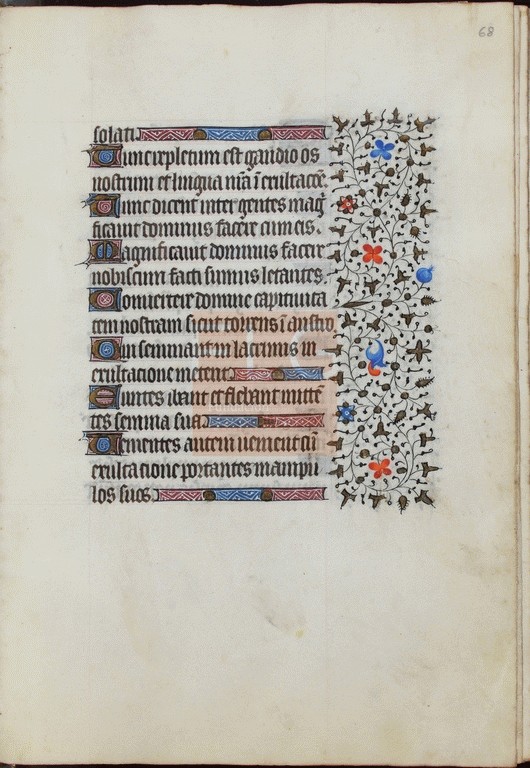 68
solati.
Tunc repletum est gaudio os
nostrum et lingua nr̃a ĩ exultacõe.
Tunc dicent inter gentes mag
ficauit dominus facere cum eis.
Magnificauit dominus facere
nobiscum facti sumus letantes.
Conuertere domine captiuita
tem nostram sicut torrens ĩ austro
Qui seminant in lacrimis in
exultacione metent.
Euntes ibant et flebant mittẽ
tes semina sua.
Uenientes autem uenient cũ
exultacione portantes manipu
los suos.